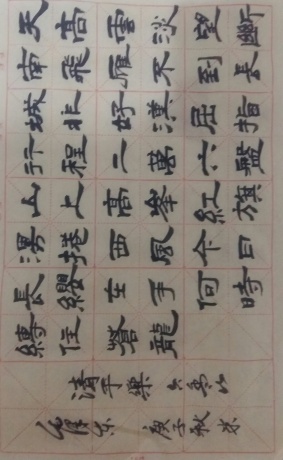 天高雲淡望斷
南飛雁不到長
城非好漢屈指
行程二萬六盤
山上高峯紅旗
漫捲西風今日
長纓在手何時
縛住蒼龍
清平樂 六盘山
毛澤东 庚子秋